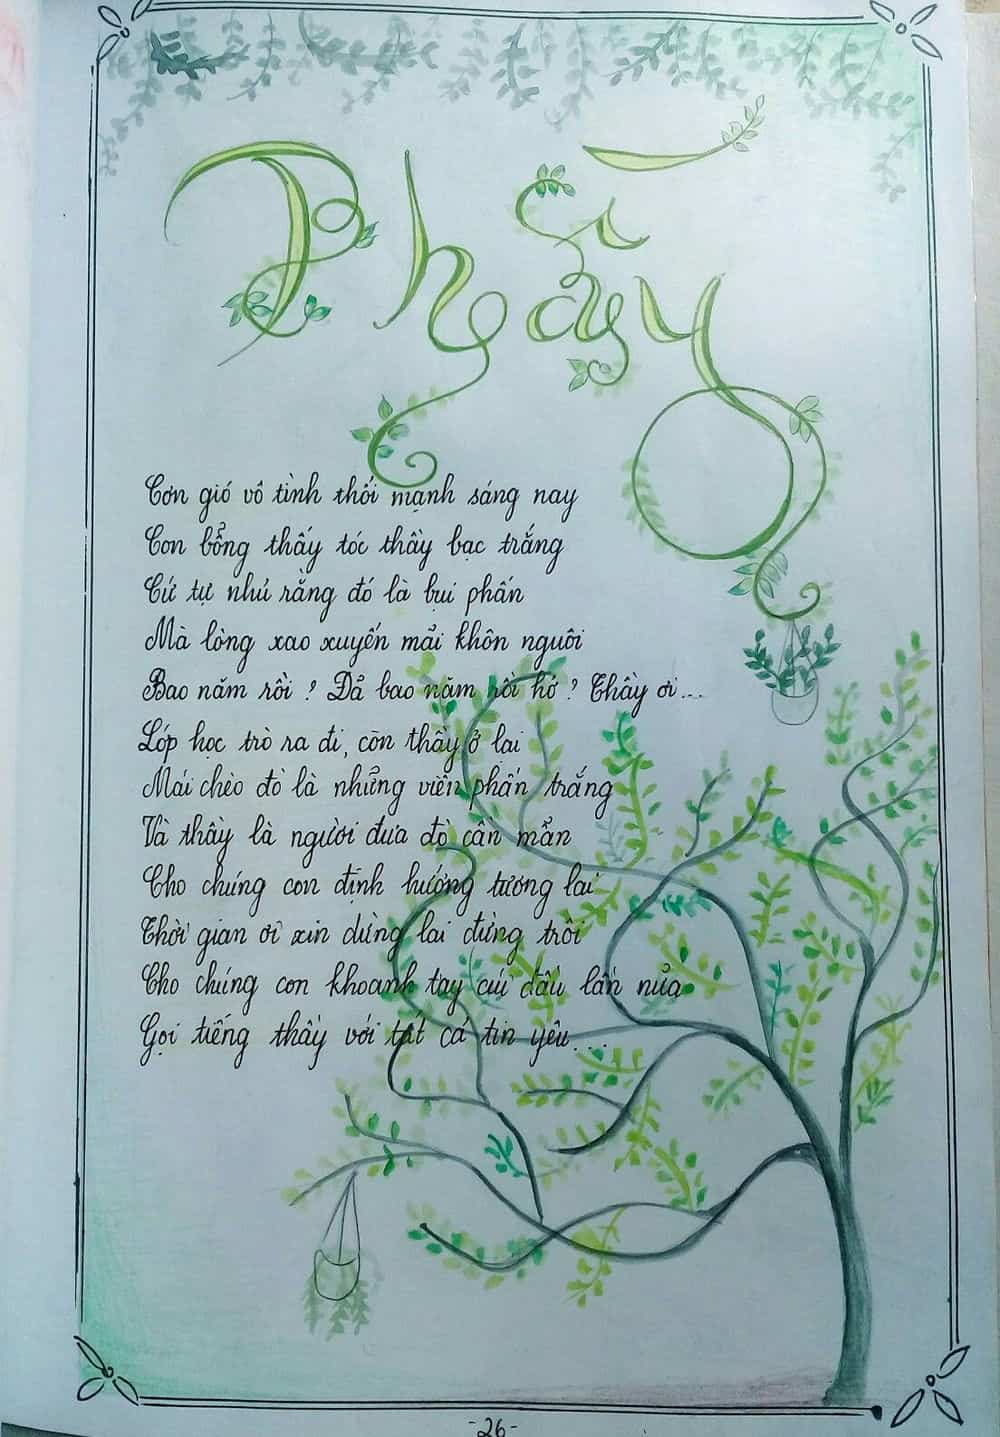 Thầy
Cơn gió vô tình thổi mạnh sáng nay
Con bỗng thấy tóc thầy bạc trắng
Cứ tự nhủ rằng đó là bụi phấn
Mà lòng xao xuyến mãi khôn nguôi
Bao năm rồi ? Đã bao năm rồi hở ? Thầy ơi ...
Lớp học trò ra đi, còn thầy ở lại
Mái chèo đò là những viên phấn trắng
Và thầy là người đưa đò cần mẫn
Cho chúng con định hướng tương lai
Thời gian ơi xin dừng lại đừng trôi
Cho chúng con khoanh tay cúi đầu lần nữa
Gọi tiếng thầy với tất cả tin yêu....
-26-